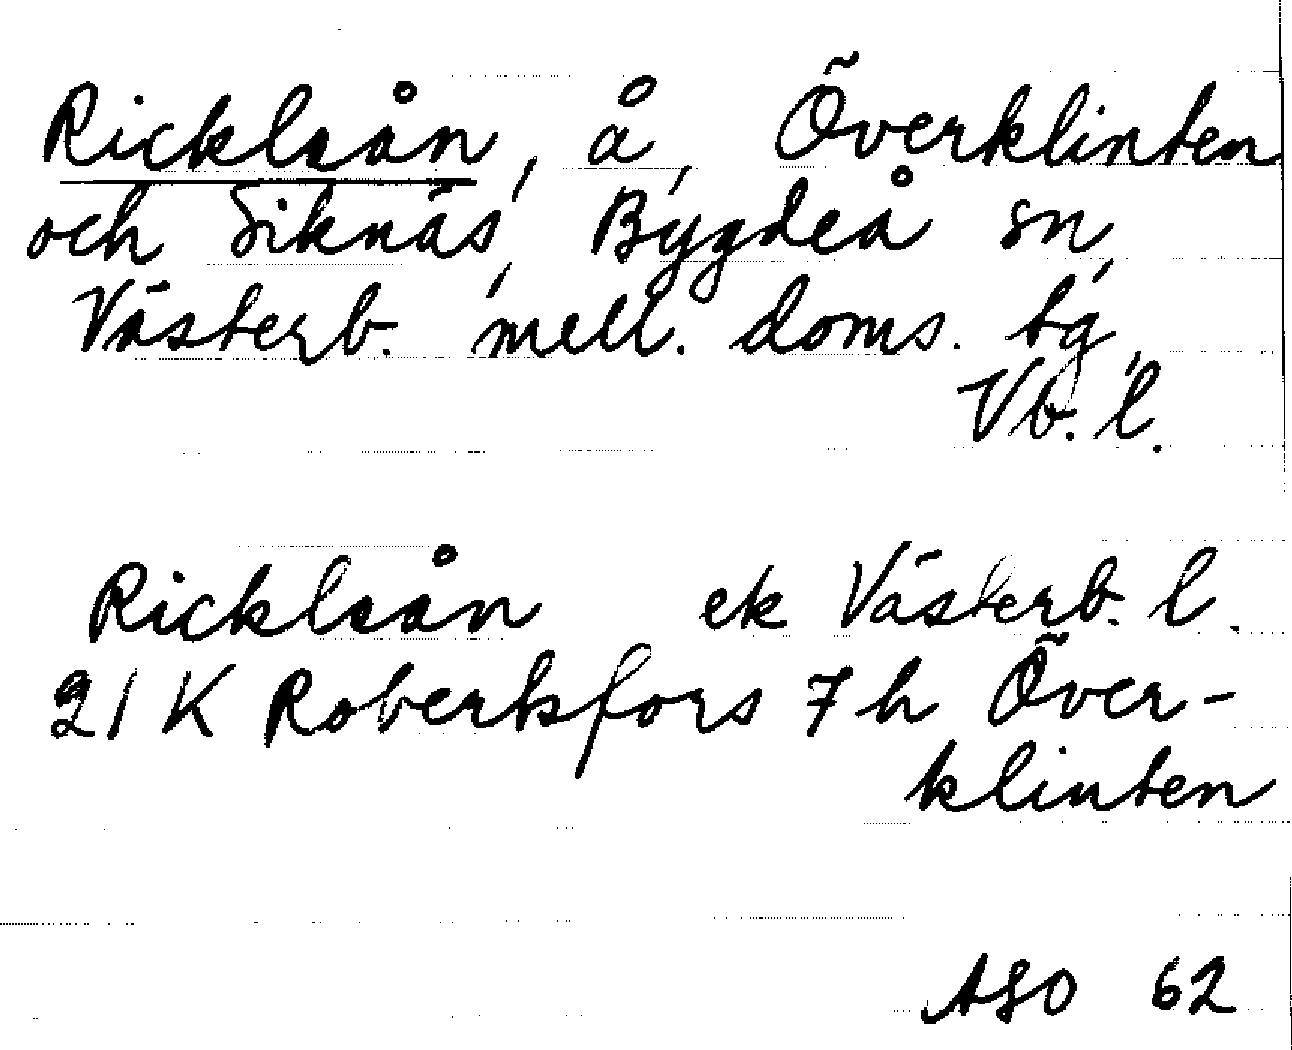 Ricklaån, å, Överklinten
och Siknäs, Bygdeå sn,
Västerb. mell. doms. tg,
Vb. l.
Ricklaån ek Västerb. l.
21 K Robertsfors 7 h Över-
klinten
ASO 62